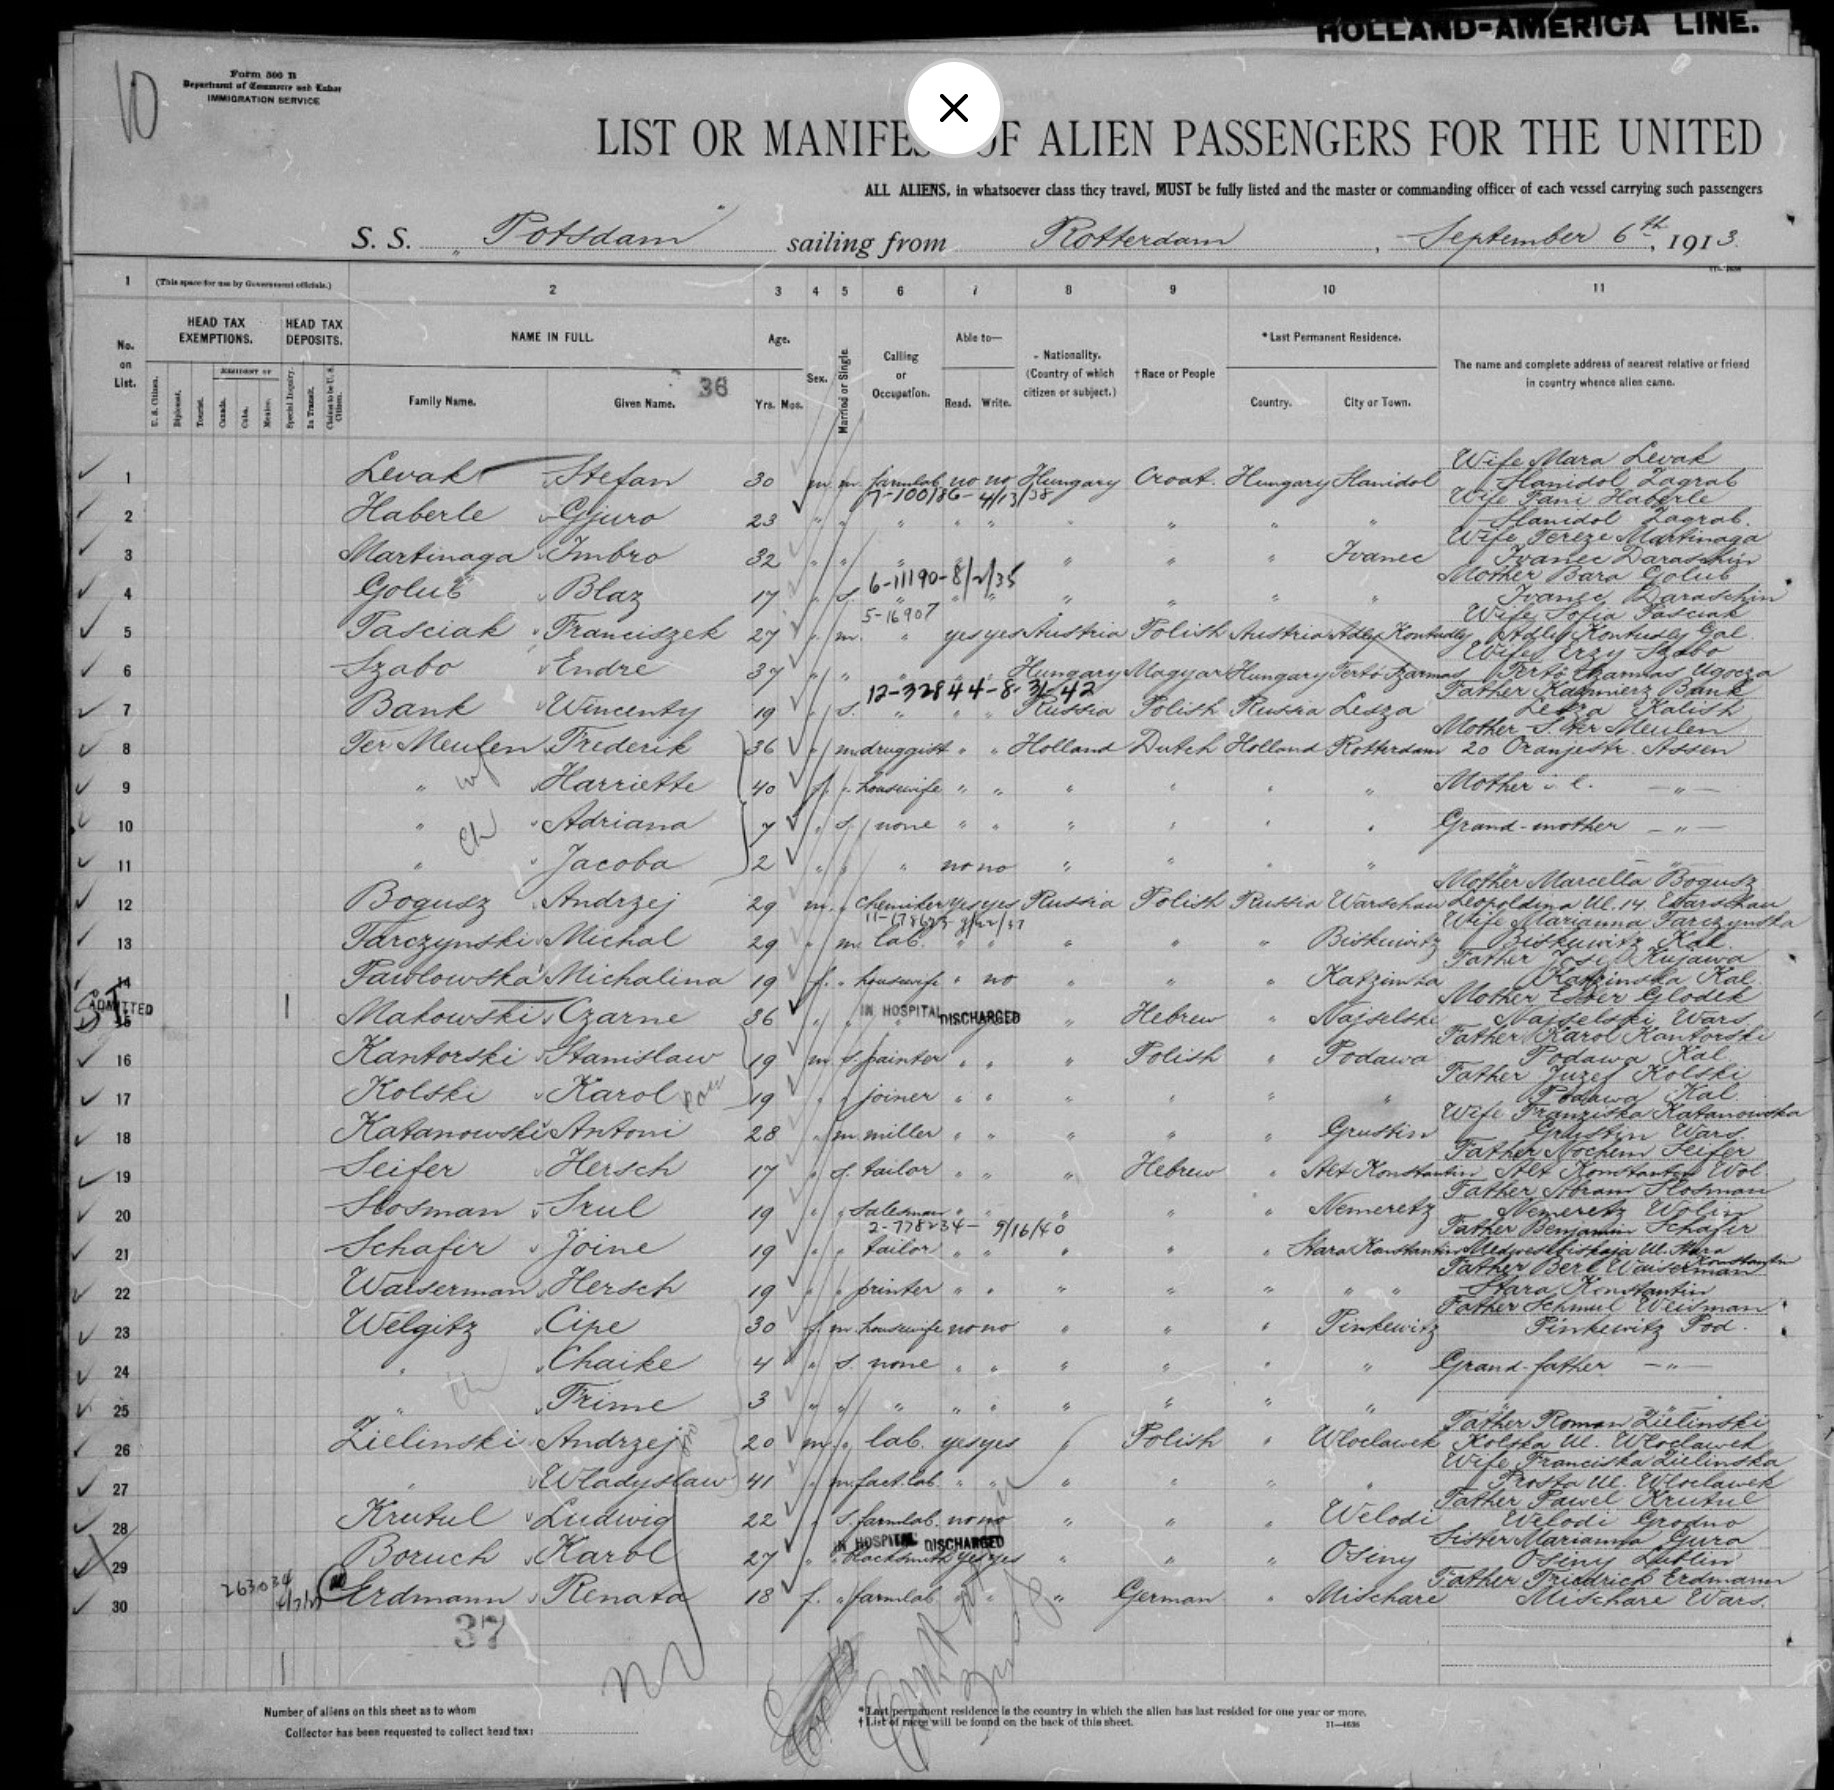 HOLLAND-AMERICA LINE.
10
Form 500 B
Department of Commerce and Labor
IMMIGRATION SERVICE
LIST OR MANIFES OF ALIEN PASSENGERS FOR THE UNITED
ALL ALIENS, in whatsoever class they travel, MUST be fully listed and the master or commanding officer of each vessel carrying such passengers
S. S. " Potsdam " sailing from Rotterdam, September 6th, 1913.
11-4638
1 (This space for use by Government officials.) 2 3 4 5 6 7 8 9 10 11
No. on List. HEAD TAX EXEMPTIONS. HEAD TAX DEPOSITS. NAME IN FULL. Age. Sex. Married or Single. Calling or Occupation. Able to— Nationality. (Country of which citizen or subject.) †Race or People *Last Permanent Residence. The name and complete address of nearest relative or friend in country whence alien came.
U. S. Citizen. Diplomat. Tourist. RESIDENT OF Canada. Cuba. Mexico. Special Inquiry. In Transit. Claims to be U. S. Citizen. Family Name. Given Name. 36 Yrs. Mos. Read. Write. Country. City or Town.
1 Levak Stefan 30 m. m. farmlab. no no Hungary Croat. Hungary Hanidol Wife Mara Levak Hanidol Zagrab
7-100186- 4/13/38
2 Haberle Gjuro 23 " " " " " " " " " Wife Fani Haberle Hanidol Zagrab.
3 Martinaga Imbro 32 " " " " " " " " Ivanec Wife Tereze Martinaga Ivanec Daraschin
6-11190-8/2/35
4 Golub Blaz 17 " S. " " " " " " " Mother Bara Golub Ivanec Daraschin
5-16907
5 Pasciak Franciszek 27 " m. " yes yes Austria Polish Austria Adlef Kontudly Wife Sofia Pasciak Adlef Kontudly Gal.
6 Szabo Endre 37 " " " " " Hungary Magyar Hungary Fertö Szarmas Wife Erzy Szabo Fertö Szarmas Ugocza
12-32844-8-31-42
7 Bank Wincenty 19 " S. " " " Russia Polish Russia Lesza Father Kazmierz Bank Lesza Kalish
8 Ter Meulen Frederik 36 " m. druggist " " Holland Dutch Holland Rotterdam Mother S. ter Meulen 20 Oranjestr. Assen
9 " wf Harriette 40 f. " housewife " " " " " " Mother i. l. — " —
10 " ch Adriana 7 " S. none " " " " " " Grand-mother — " —
11 " Jacoba 2 " " " no no " " " " " "
12 Bogusz Andrzej 29 m. " chemiker yes yes Russia Polish Russia Warschau Mother Marcella Bogusz Leopoldina Ul. 14. Warschau
13 Tarczynski Michal 29 " m. lab. " " " " " Biskuwitz Wife Marianna Tarczynska Biskuwitz Kal.
14 Pawlowska Michalina 19 f. " housewife " no " " " Katzimska Father Josef Kujawa Katzinska Kal.
ADMITTED
15 Makowski Czarne 36 " " IN HOSPITAL DISCHARGED " Hebrew " Najselski Mother Ester Glodek Najselski Wars.
16 Kantorski Stanislaw 19 m S. painter " " " Polish " Podawa Father Karol Kantorski Podawa Kal.
17 Kolski Karol 19 " " joiner " " " " " " Father Juzef Kolski Podawa Kal.
18 Katanowski Antoni 28 " m. miller " " " " " Grustin Wife Franziska Katanowska Grustin Wars.
19 Seifer Hersch 17 " S. tailor " " " Hebrew " Alt Konstantin Father Nochem Seifer Alt Konstantin Wol.
20 Hosman Srul 19 " " salesman " " " " " Nemeretz Father Abram Hosman Nemeretz Wolin
2-778234- 9/16/40
21 Schafir Joine 19 " " tailor " " " " " Stara Konstantin Father Benjamin Schafir Ul. Stara Konstantin
22 Waiserman Hersch 19 " " printer " " " " " " " Father Berl Waiserman Stara Konstantin
23 Welgitz Cipe 30 f. m. housewife no no " " " Pinkewitz Father Schmul Weisman Pinkewitz Pod.
24 " ch Chaike 4 " S. none " " " " " " Grand-father — " —
25 " Frime 3 " " " " " " " " " "
26 Zielinski Andrzej 20 m. " lab. yes yes " Polish " Wloclawek Father Roman Zielinski Kolska Ul. Wloclawek
27 " Wladyslaw 41 " m. fact.lab. " " " " " " Wife Franciska Zielinska Prosta Ul. Wloclawek
28 Krutul Ludwig 22 " S. farmlab. no no " " " Welodi Father Pawel Krutul Welodi Grodno
IN HOSPITAL DISCHARGED
29 Boruch Karol 27 " " blacksmith yes yes " " " Osiny Sister Marianna Gura Osiny Lublin
263034
30 Erdmann Renata 18 f. " farmlab. " " " German " Mischare Father Friedrich Erdmann Mischare Wars.
37
Number of aliens on this sheet as to whom
Collector has been requested to collect head tax:
* Last permanent residence is the country in which the alien has last resided for one year or more.
† List of races will be found on the back of this sheet.
11—4638